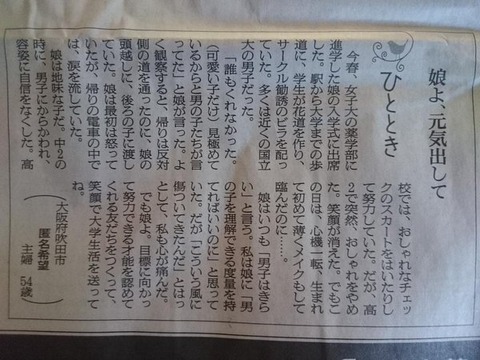 娘よ、元気出して
ひととき
今春、女子大の薬学部に
進学した娘の入学式に出席
した。駅から大学までの歩
道に、学生が花道を作り、
サークル勧誘のビラを配っ
ていた。多くは近くの国立
大の男子だった。
「誰もくれなかった。
〈可愛い子だけ〉見極めて
いるからと男の子たちが言
ってた」と娘が言った。よ
く観察すると、帰りは反対
側の道を通ったのに、娘の
頭越しに、後ろの子に渡し
ていた。娘は最初は怒って
いたが、帰りの電車の中で
は、涙を流していた。
娘は地味な子だ。中2の
時に、男子にからかわれ、
容姿に自信をなくした。高
校では、おしゃれなチェッ
クのスカートをはいたりし
て努力していた。だが、高
2で突然、おしゃれをやめ
た。笑顔が消えた。でもこ
の日は、心機一転、生まれ
て初めて薄くメイクもして
臨んだのに……。
娘はいつも「男子はきら
い」と言う。私は娘に「男
の子を理解できる度量を持
てればいいのに」と思って
いた。だが「こういう風に
傷ついてきたんだ」とはっ
として、私も心が痛んだ。
でも娘よ。目標に向かっ
て努力できる才能を認めて
くれる友だちをつくって、
笑顔で大学生活を送って
ね。
（大阪府吹田市
匿名希望
主婦 54歳）